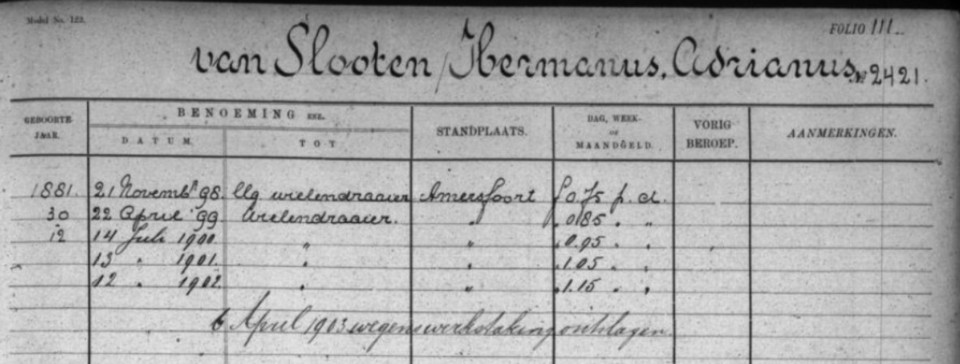 Model No. 122.
FOLIO 111
van Slooten, Hermanus, Adrianus, No 2421.
GEBOORTE- JAAR. BENOEMING ENZ. STANDPLAATS. DAG, WEEK- OF MAANDGELD. VORIG BEROEP. AANMERKINGEN.
DATUM. TOT
1881. 21 Novemb. 98. llg wielendraaier Amersfoort f 0.75 p. d.
30 22 April 99 Wielendraaier. " " 0.85 " "
12 14 Juli 1900 " " " 0.95 " "
13 " 1901. " " " 1.05 " "
12 " 1902 " " " 1.15 " "
6 April 1903 wegens werkstaking ontslagen.